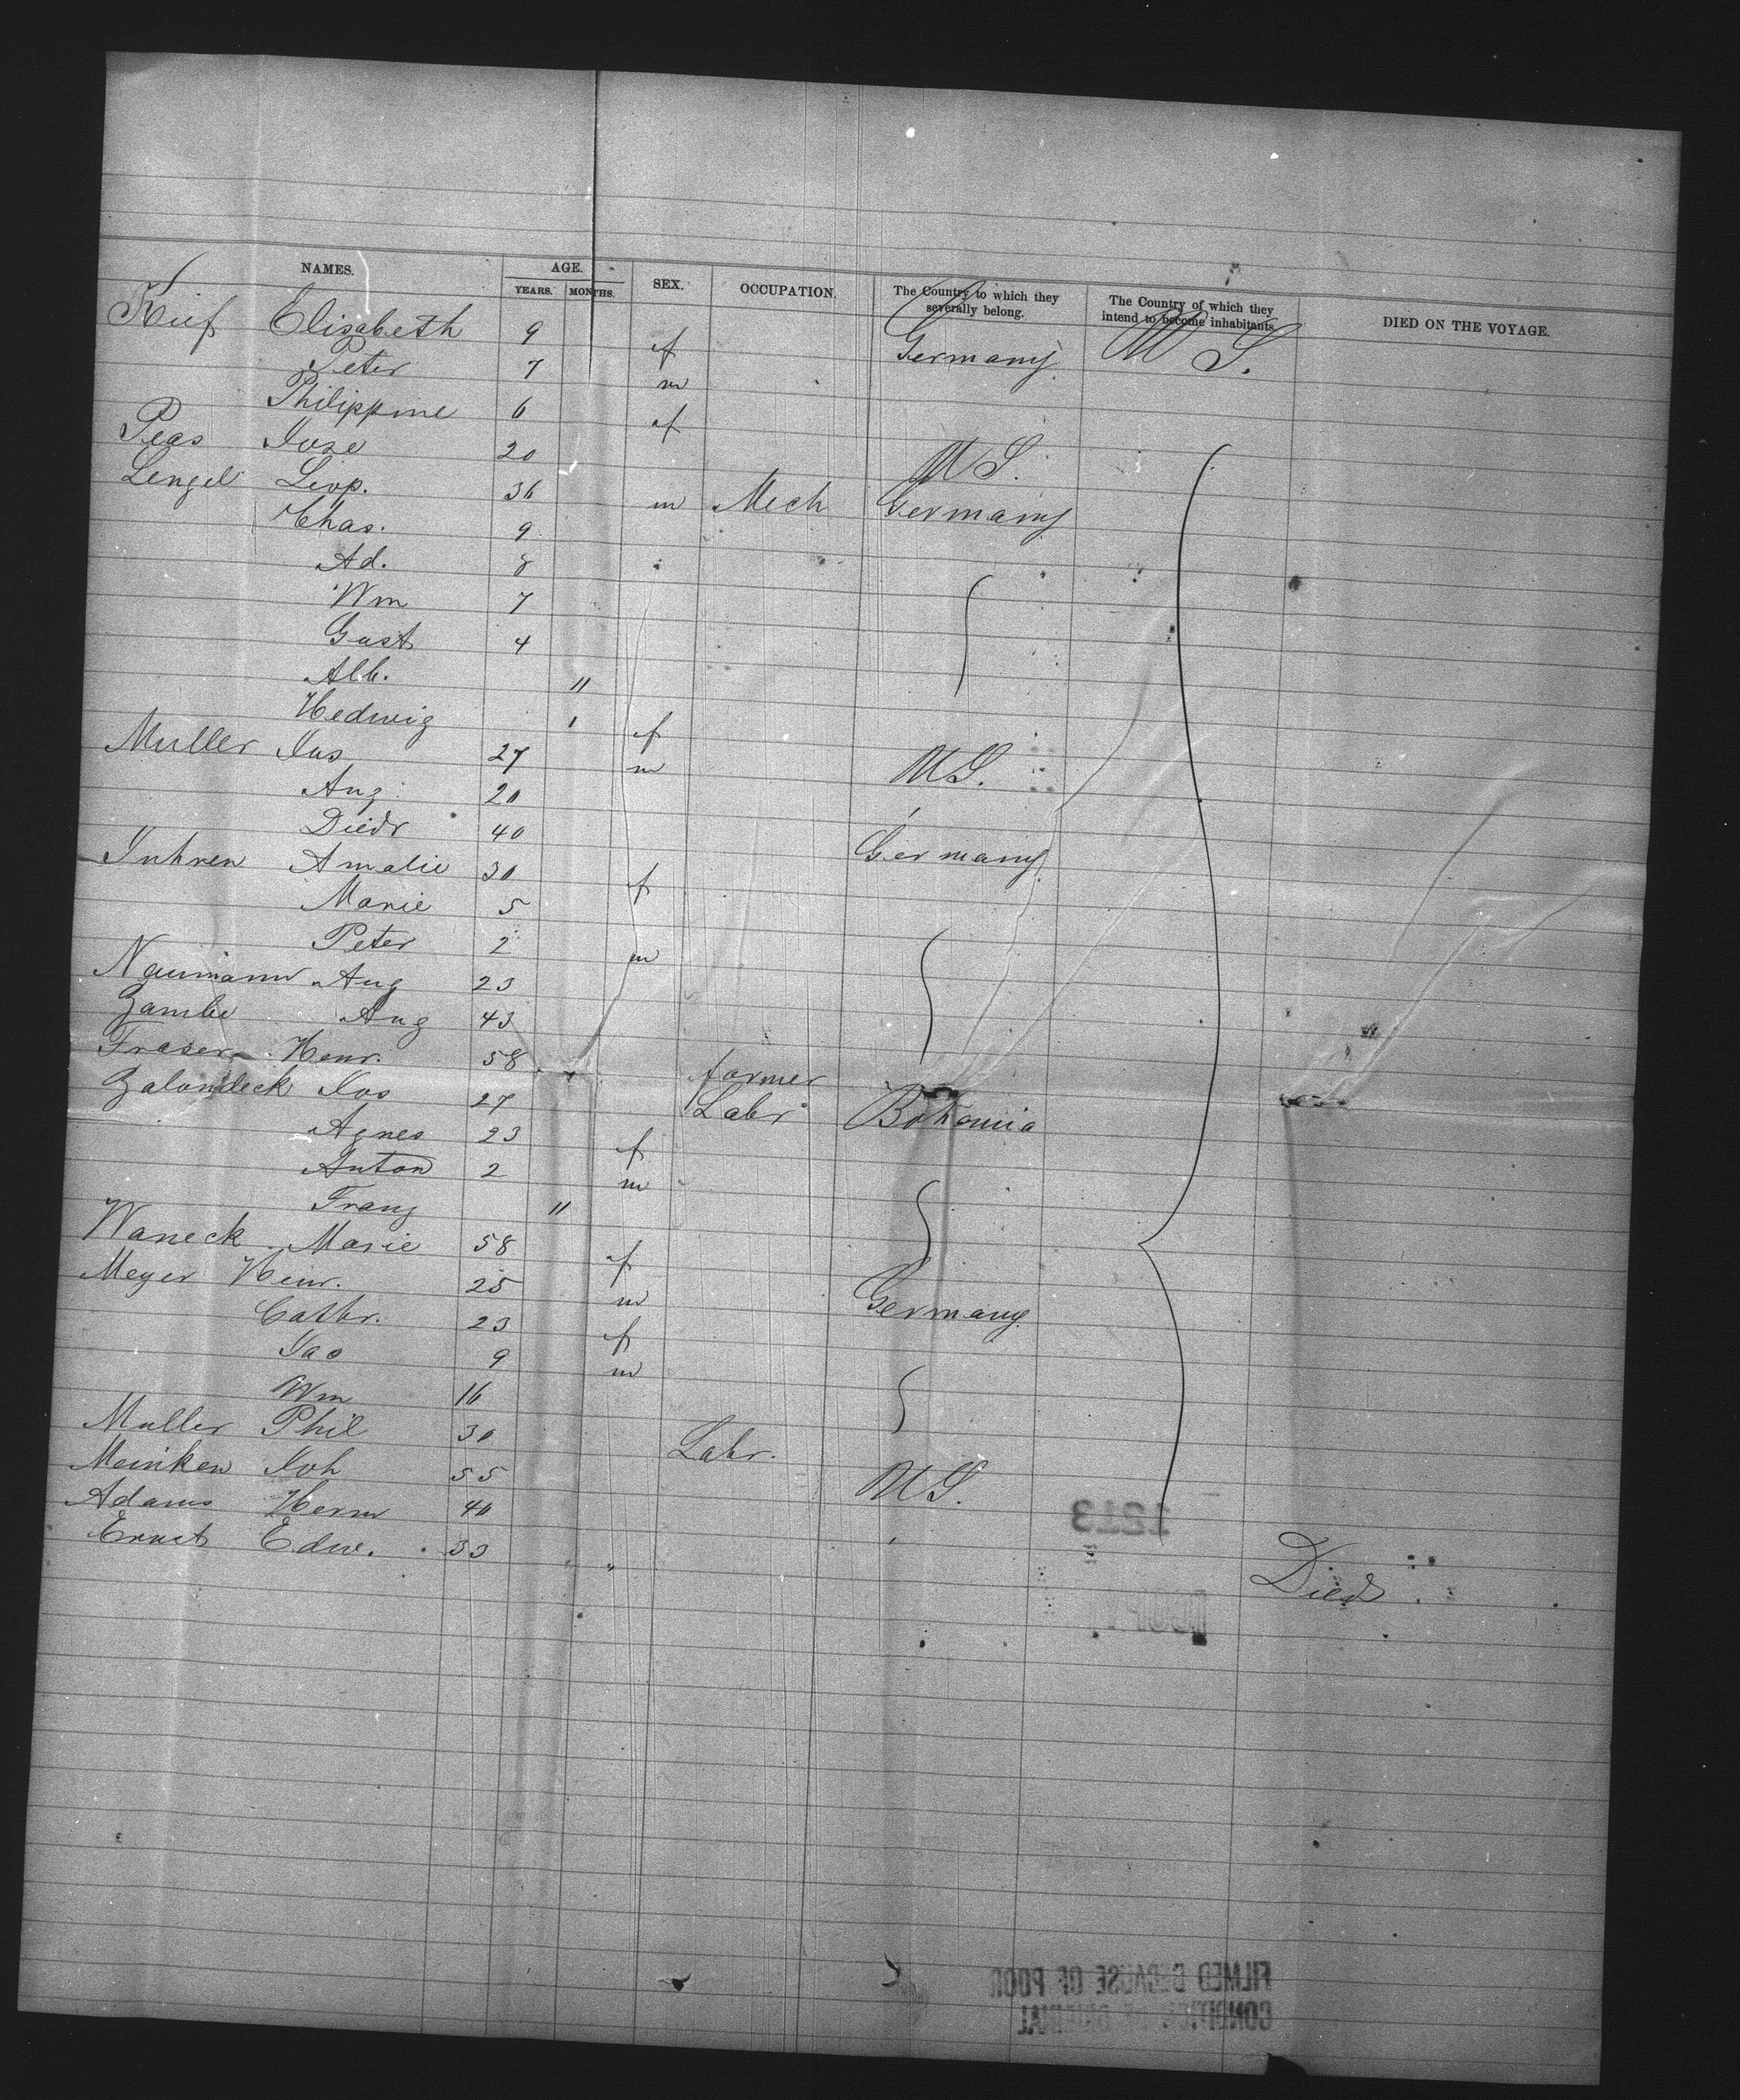 NAMES. AGE. YEARS. MONTHS. SEX. OCCUPATION. The Country to which they severally belong. The Country of which they intend to become inhabitants. DIED ON THE VOYAGE.
Elisabeth 9 f Germany U S.
Peter 7 m
Philippine 6 f
Peas 20 U S.
Lengel Leop. 36 m Mech Germany
Chas. 9
Ad. 8
Wm 7
Gust 4
Alb. 11
Hedwig 1 f
Muller Jos 27 m U S.
Aug. 20
Diedr 40 Germany
Amalie 30 f
Marie 5
Peter 2 m
Naumann Aug 23
Aug 43
Fraser Henr. 58 farmer
Jos 27 Labr Bohemia
Agnes 23 f
Anton 2 m
Franz 11
Waneck Marie 58 f
Meyer Henr. 25 m Germany
Cathr. 23 f
9 m
Wm 16
Muller Phil 30 Labr.
Meinken Joh 55 U S.
Adams Herm 40
Ernst Edw. 33 " ' Died
1213
FILMED BECAUSE OF POOR
CONDITION OF ORIGINAL